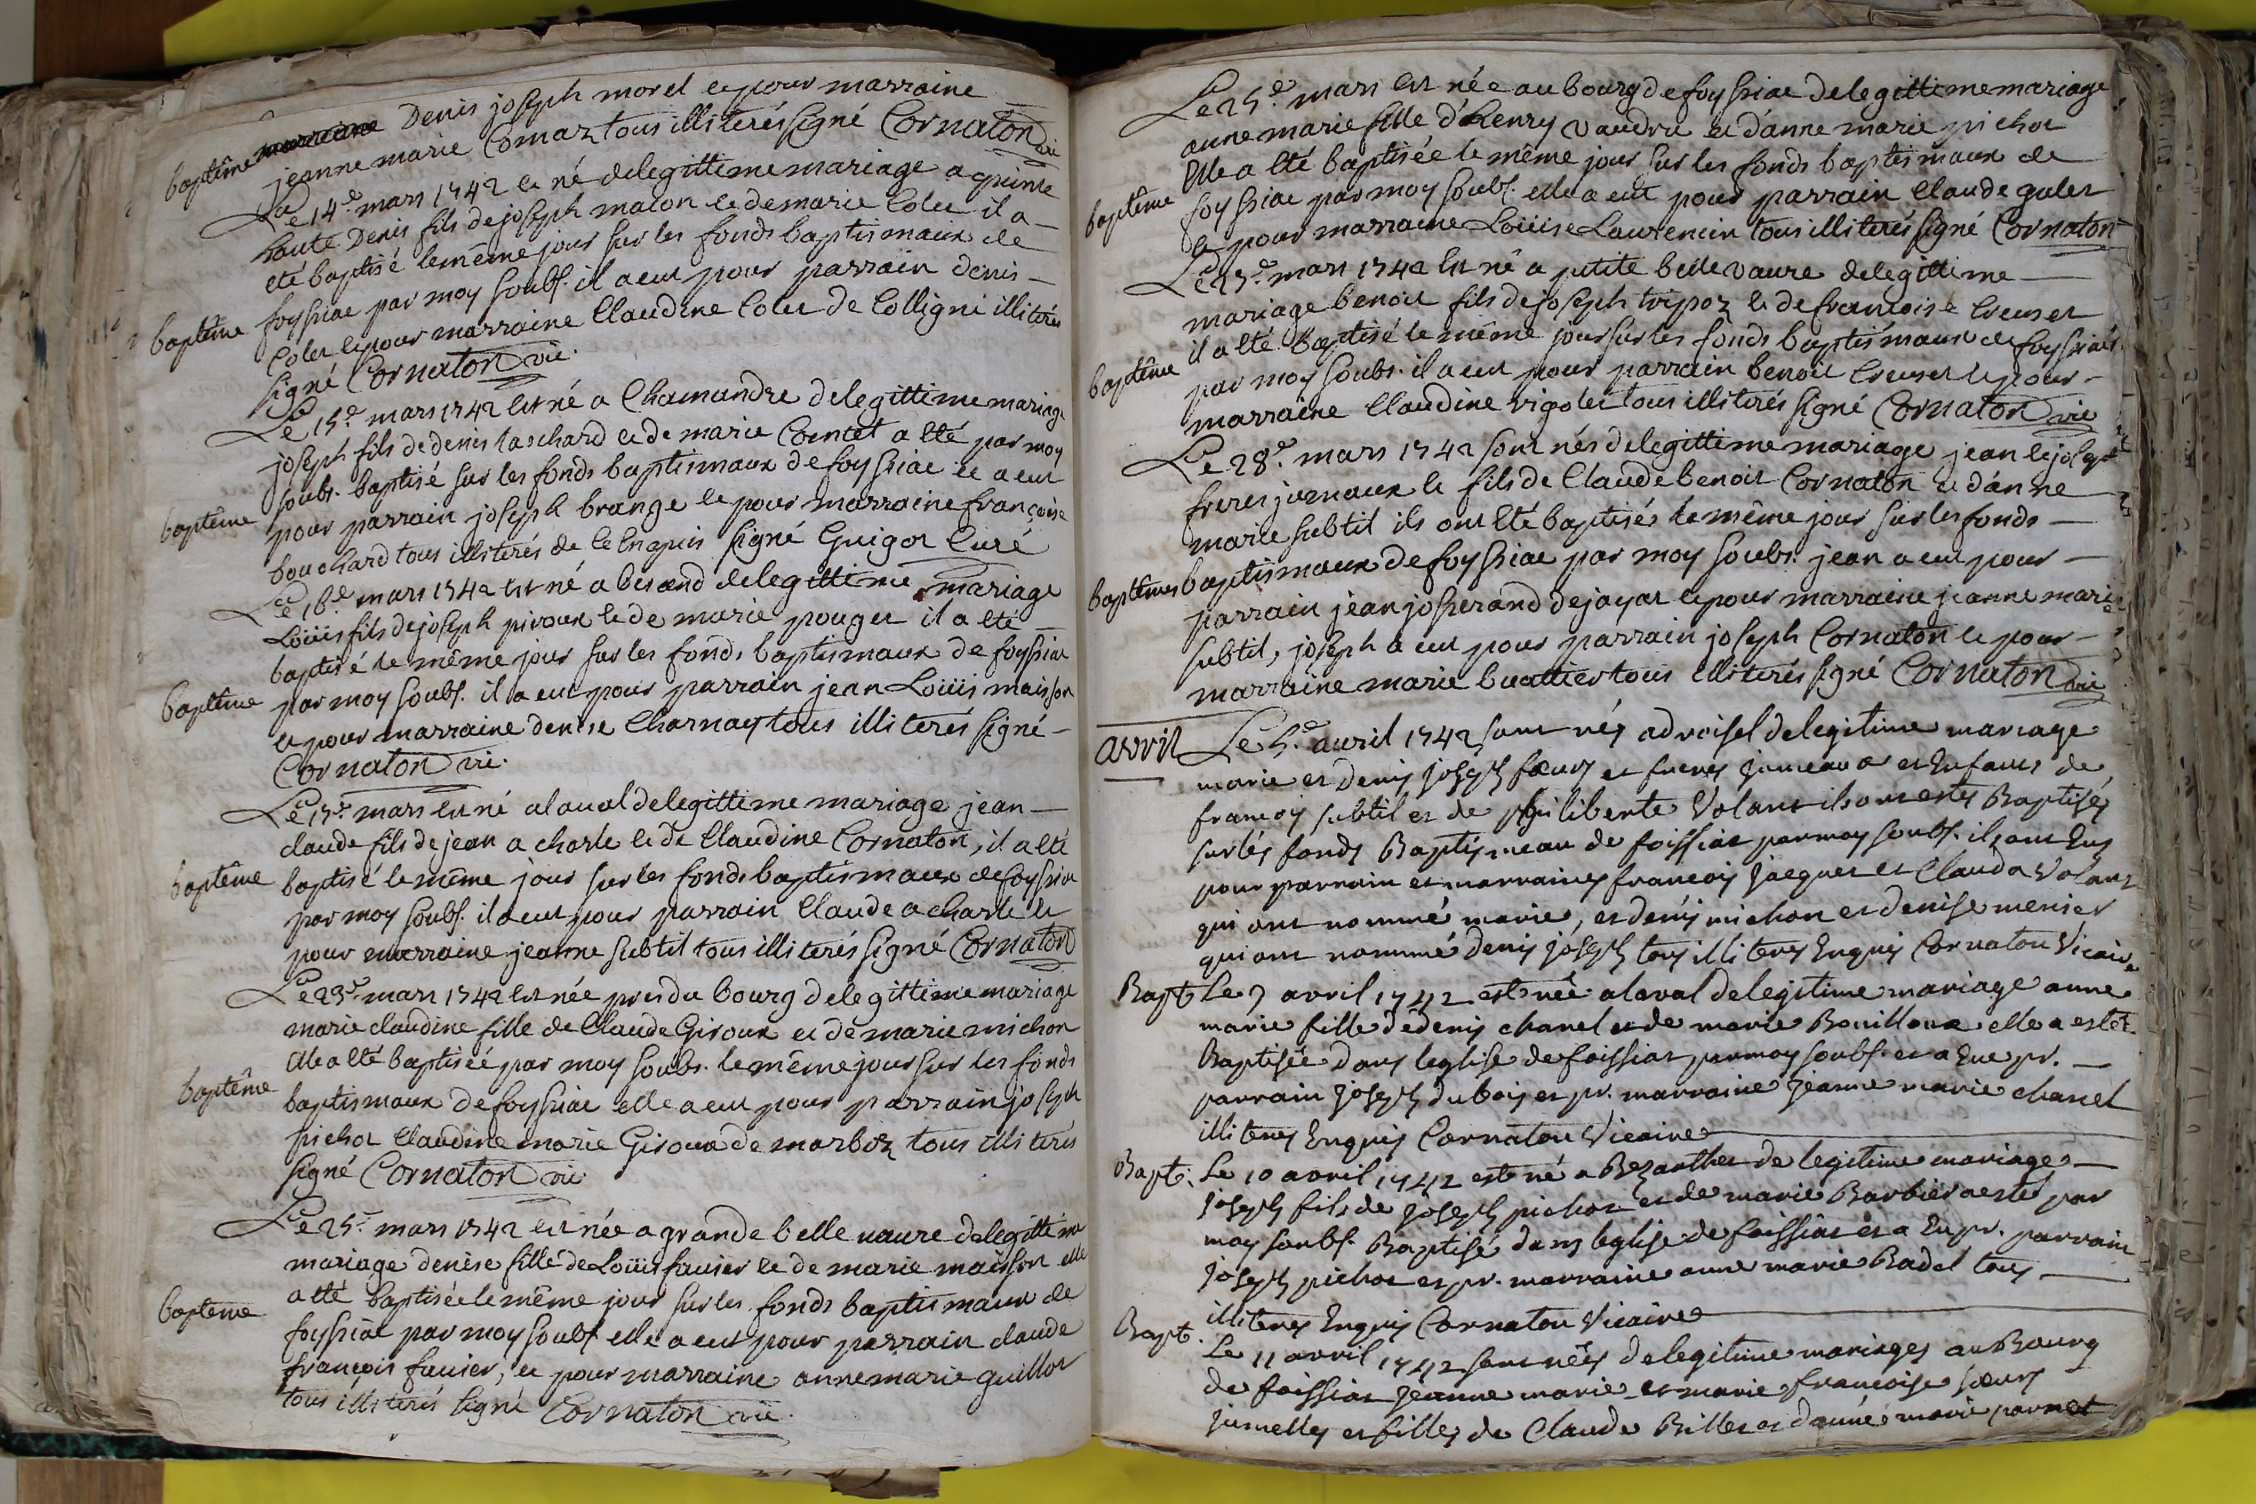 marraine Denis joseph morel et pour marraine
baptême
jeanne marie Comaz tous illiterés signé Cornaton vic
Le 14e. mars 1742 est né de legittime mariage a
haute Denis fils de joseph maton et de marie Colet il a
eté baptisé le même jour sur les fonds baptismaux de
baptême
foyssiac par moy soubs. il a eut pour parrain denis
Colet et pour marraine Claudine Colet de Colligni illiterés
signé Cornaton vic.
Le 15e. mars 1742 est né a Chamandre de legittime mariage
joseph fils de denis laschard et de marie Comtet a eté par moy
soubs. baptisé sur les fonds baptismaux de foyssiac et a eut
baptême
pour parrain joseph brange et pour marraine françoise
bouchard tous illiterés de ce enquis signé Guigot Curé
Le 16e. mars 1742 est né a besand de legittime mariage
Loüis fils de joseph piroux et de marie pouget il a eté
baptisé le même jour sur les fonds baptismaux de foyssiac
baptême
par moy soubs. il a eut pour parrain jean Loüis maisson
et pour marraine denise Charnay tous illiterés signé
Cornaton vic.
Le 17e. mars est né a laval de legittime mariage jean
claude fils de jean a charle et de Claudine Cornaton, il a eté
baptême
baptisé le même jour sur les fonds baptismaux de foyssiac
par moy soubs. il a eut pour parrain Claude a charle et
pour marraine jeanne subtil tous illiterés signé Cornaton
Le 23e. mars 1742 est née pres du bourg de legittime mariage
marie claudine fille de Claude Giroux et de marie michon
Elle a eté baptiseé par moy soubs. le même jour sur les fonds
baptême
baptismaux de foyssiac elle a eut pour parrain joseph
pichot Claudine marie Giroux de marboz tous illiterés
signé Cornaton vic.
Le 25e. mars 1742 est née a grande belle vaure de legittime
mariage denise fille de Loüis favier et de marie maisson elle
a eté baptiseé le même jour sur les fonds baptismaux de
baptême
foyssiac par moy soubs elle a eut pour parrain claude
françois favier, et pour marraine anne marie guillot
tous illiterés signé Cornaton vic.
Le 25e. mars est née au bourg de foyssiac de legittime mariage
anne marie fille d'henry vaudru et d'anne marie pichot
Elle a eté baptisée le même jour sur les fonds baptismaux de
baptême
foyssiac par moy soubs. elle a eut pour parrain Claude galet
et pour marraine Loüise Laurencin tous illiterés signé Cornaton
Le 27e. mars 1742 est né a petite belle vaure de legittime
mariage benoit fils de joseph tripoz et de francoise Creuset
il a eté baptisé le même jour sur les fonds baptismaux de foyssiac
baptême
par moy soubs. il a eut pour parrain benoit Creuset et pour
marraine Claudine vigolet tous illiterés signé Cornaton vic
Le 28e. mars 1742 sont nés de legittime mariage jean et joseph
freres jumeaux et fils de Claude benoit Cornaton et d'anne
marie subtil ils ont eté baptisés le même jour sur les fonds
baptêmes
baptismaux de foyssiac par moy soubs. jean a eut pour
parrain jean josserand de jayat et pour marraine jeanne marie
subtil, joseph a eut pour parrain joseph Cornaton et pour
marraine marie buattier tous illiterés signé Cornaton vic
avril
Le 5e. avril 1742 sont nés a droisel de legitime mariage
marie et denis joseph sœurs et freres jumeaux et Enfants de
francois subtil et de philiberte Volant ils ont estés Baptisés
sur lés fonds Baptismeau de foissiat par moy soubs. ils ont Eus
pour parrain et marraines francois jacquet et Claudа Volant
qui ont nommé marie, et denis michon et denise menier
qui ont nommé denis joseph tous illiterés Enquis Cornaton Vicaire
Bapt.
Le 7 avril 1742 est née a laval de legitime mariage anne
marie fille de denis chanel et de marie Bouilloux elle a estét
Baptisée dans leglise de foissiat par moy soubs. et a Eue pr.
parrain joseph dubois et pr. marraine jeanne marie chanel
illiterés Enquis Cornaton Vicaire
Bapt.
Le 10 avril 1742 est né a Bezanthet de legitime mariage
joseph fils de joseph pichot et de marie Barbier a esté par
moy soubs. Baptisé dans leglise de foissiat et a Eu pr. parrain
joseph pichot et pr. marraine anne marie Badel tous
illiterés Enquis Cornaton Vicaire
Bapt.
Le 11 avril 1742 sont nées de legitime mariages au Bourg
de foissiat jeanne marie et marie francoise sœurs
jumelles et filles de Claude Billet et d'anne marie parnet